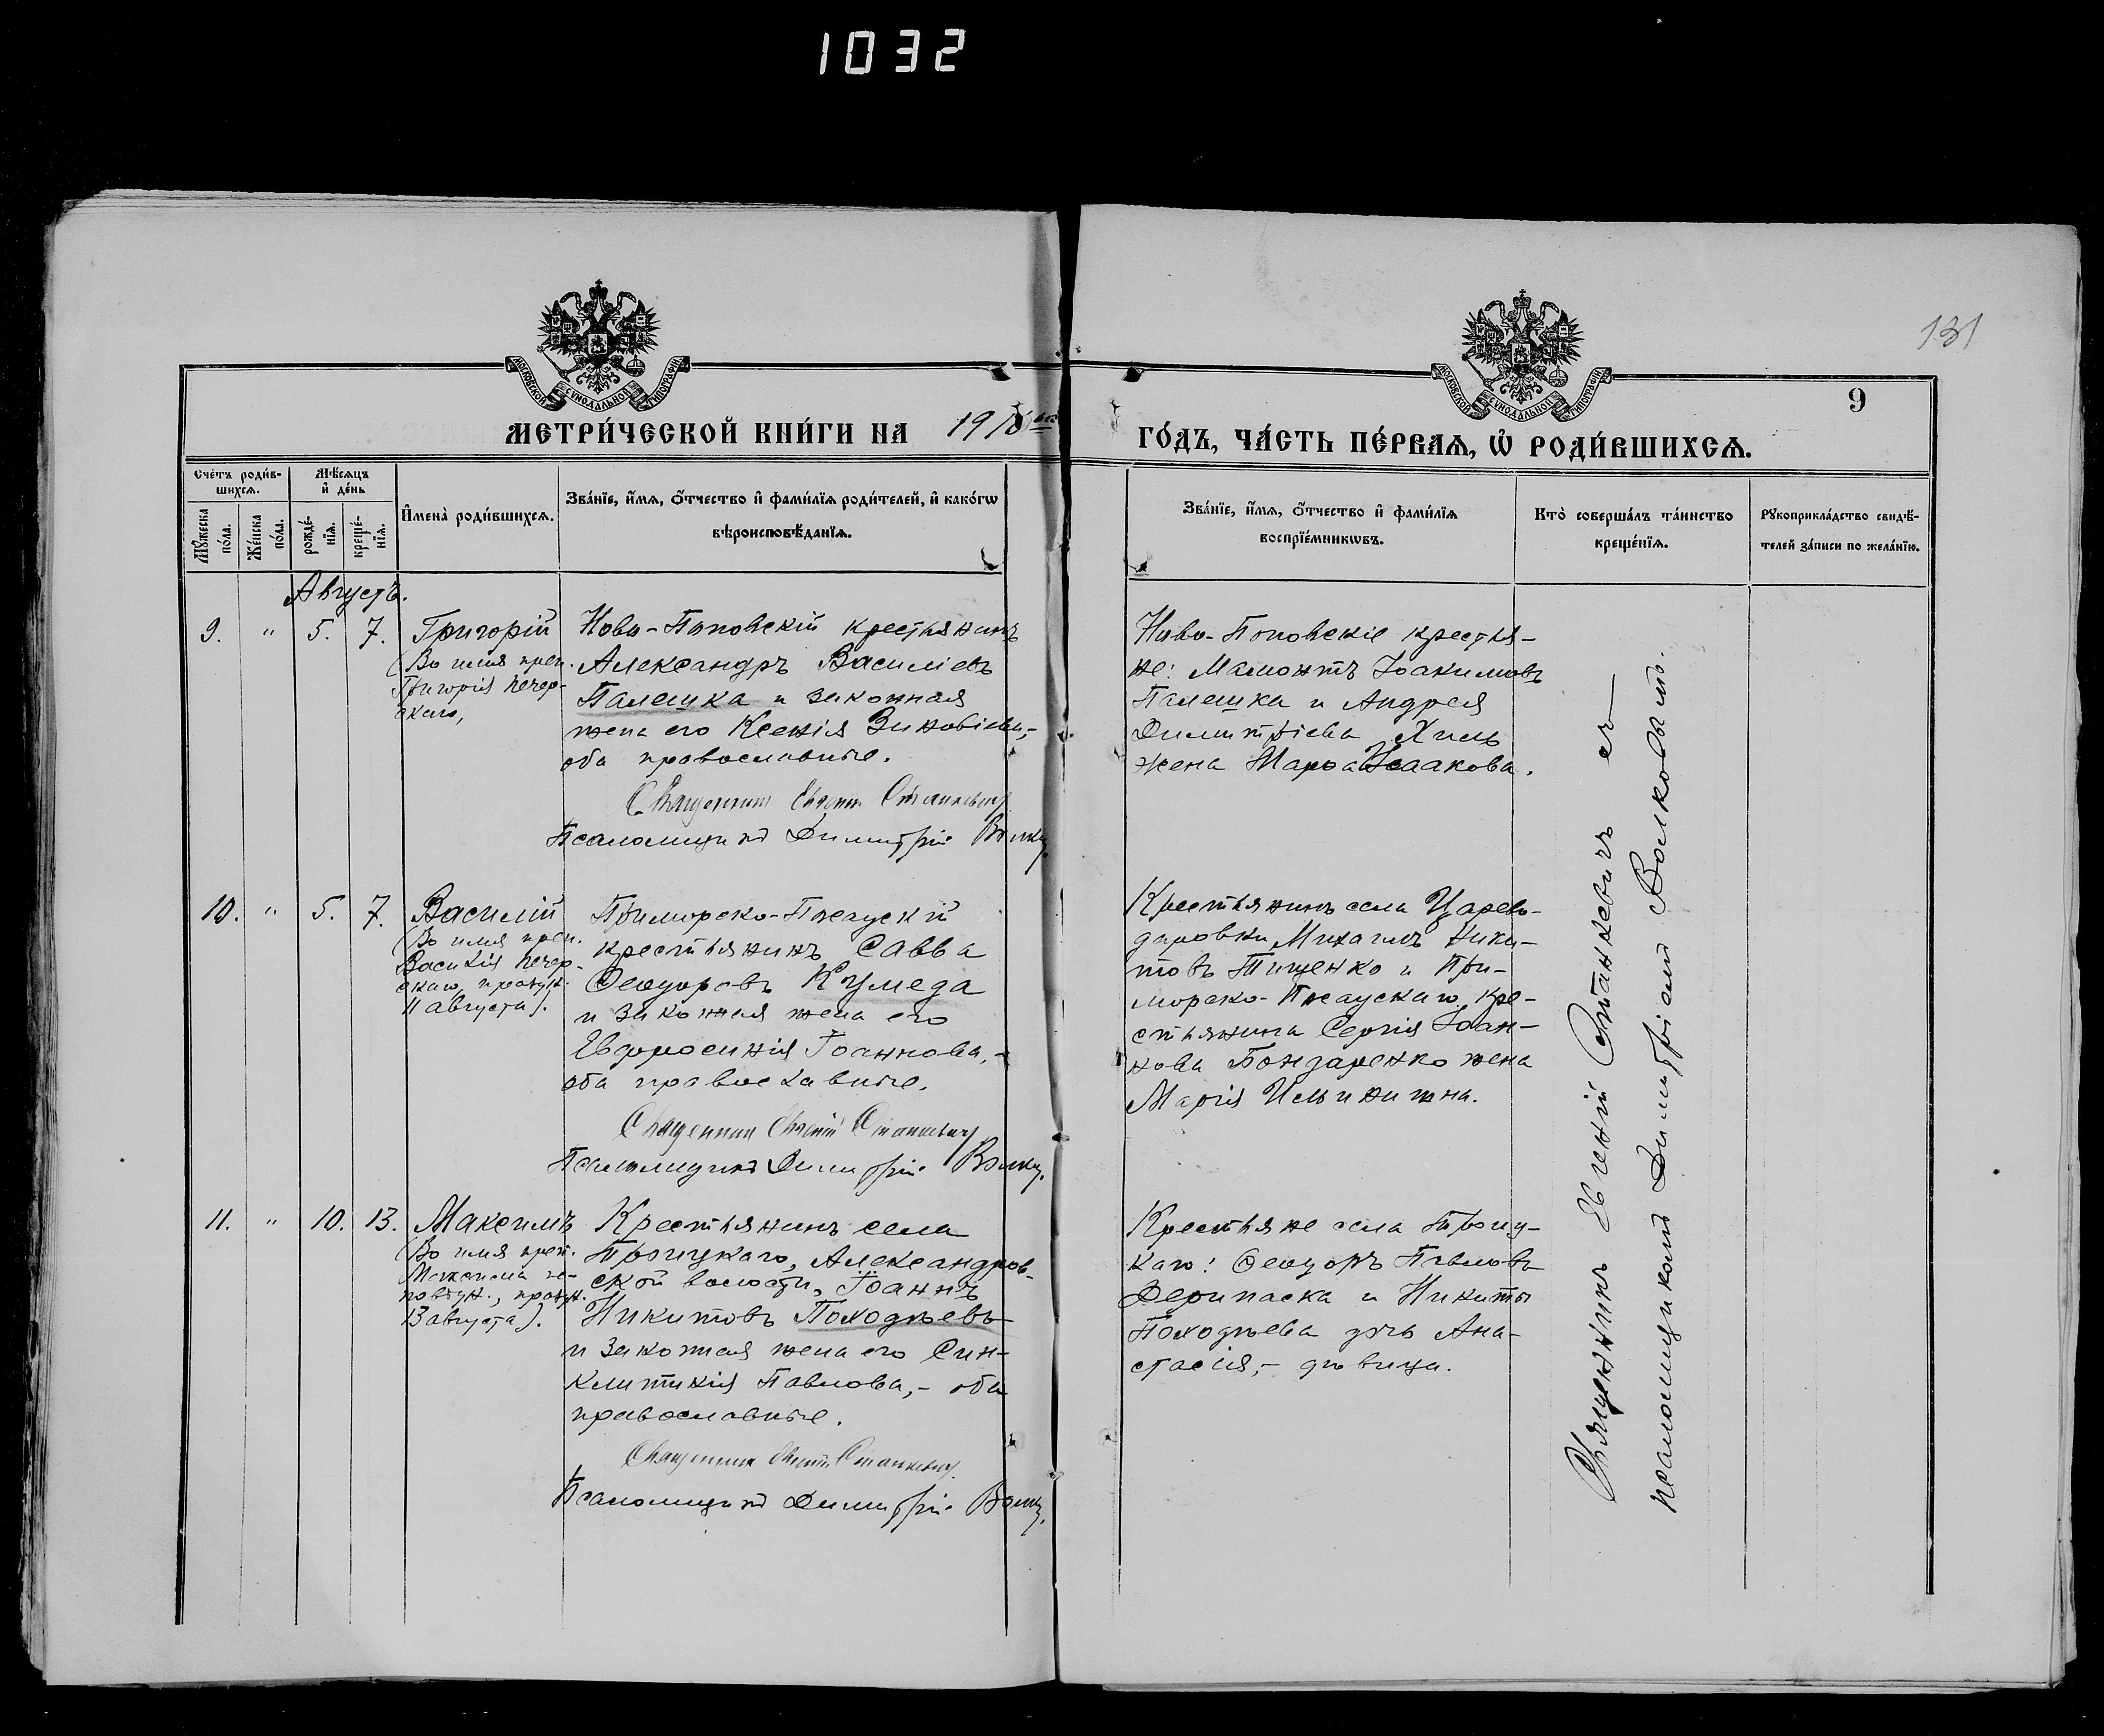 1032
131
МОСКОВСКОЙ СѴНОДАЛЬНОЙ ТИПОГРАФІИ
МОСКОВСКОЙ СѴНОДАЛЬНОЙ ТИПОГРАФІИ
9
МЕТРИ́ЧЕСКОЙ КНИ́ГИ НА 1918
ГО́ДЪ, ЧА́СТЬ ПЕ́РВАЯ, Ѿ РОДИ́ВШИХСѦ.
Сче́тъ роди́в-
шихсѧ.
Мѣ́сѧцъ
и҆ де́нь
Мꙋ́жеска
по́ла.
Же́нска
по́ла.
рожде́-
нїѧ.
креще́-
нїѧ.
И҆мена̀ роди́вшихсѧ.
Зва́нїе, и҆́мѧ, ѻ҆́тчество и҆ фами́лїѧ роди́телей, и҆ како́гѡ
вѣроисповѣ́данїѧ.
Зва́нїе, и҆́мѧ, ѻ҆́тчество и҆ фами́лїѧ
воспрїе́мникѡвъ.
Кто̀ соверша́лъ та́инство
креще́нїѧ.
Рꙋкоприкла́дство свидѣ́-
телей за́писи по жела́нїю.
Августъ.
9. " 5. 7. Григорій
(Во имя преп.
Григорія Печер-
скаго,
Ново-Поповскій крестьянинъ
Александръ Василіевъ
Палешка и законная
жена его Ксенія Зиновіева,-
оба православные.
Священникъ Евгеній Станкевичъ
Псаломщикъ Димитрій Волк
Ново-Поповскіе крестья-
не: Мамонтъ Іоакимовъ
Палешка и Андрея
Димитріева Хиль
жена Марѳа Исаакова.
10. " 5. 7. Василій
(Во имя преп.
Василія Печер-
скаго, празди.
11 августа).
Приморско-Псаускій
крестьянинъ Савва
Ѳеодоровъ Кумеда
и законная жена его
Евфросинія Іоаннова,-
оба православные.
Священникъ Евгеній Станкевичъ
Псаломщикъ Димитрій Волк
Крестьянинъ села Царево-
даровки Михаилъ Ники-
товъ Тищенко и При-
морско-Псаускаго кре-
стьянина Сергія Іоан-
нова Бондаренко жена
Марія Ильинична.
11. " 10. 13. Максимъ
(Во имя преп.
Максима ис-
повѣдн., праздн.
13 августа).
Крестьянинъ села
Троицкаго, Александров-
ской волости, Іоаннъ
Никитовъ Походневъ
и законная жена его Син-
клитикія Павлова,- оба
православные.
Священникъ Евгеній Станкевичъ
Псаломщикъ Димитрій Волк
Крестьяне села Троиц-
каго: Ѳеодоръ Павловъ
Дерипаска и Никиты
Походнева дочь Ана-
стасія,- дѣвица.
Священникъ Евгеній Станкевичъ съ
псаломщикомъ Димитріемъ Волковымъ.